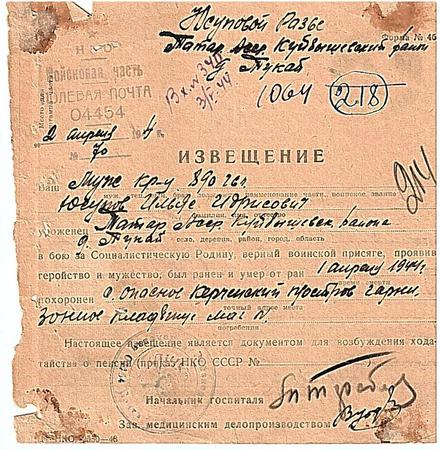 Юсуповой Разье
Форма № 46
Татар. Асср Куйбышевский район
НКО
Войсковая часть
Полевая почта
04454
д Тукай
Вх. №
3/V-44
1064 218
2 апреля 4
№ 70
214
ИЗВЕЩЕНИЕ
Ваш Муж кр-ц 890
наименование части, воинское звание
Юсупов Идрисович
фамилия, имя, отчество
уроженец Татар Асср Куйбышевск района
д. Тукай
село, деревня, район, город, область
в бою за Социалистическую Родину, верный воинской присяге, проявив
геройство и мужество, был ранен и умер от ран 1 апреля 1944
похоронен с. Опасное Керченский
кладбище
погребения
Настоящее извещение является документом для возбуждения хода-
тайства о пенсии (приказ НКО СССР №
Начальник госпиталя
Зав. медицинским делопроизводством